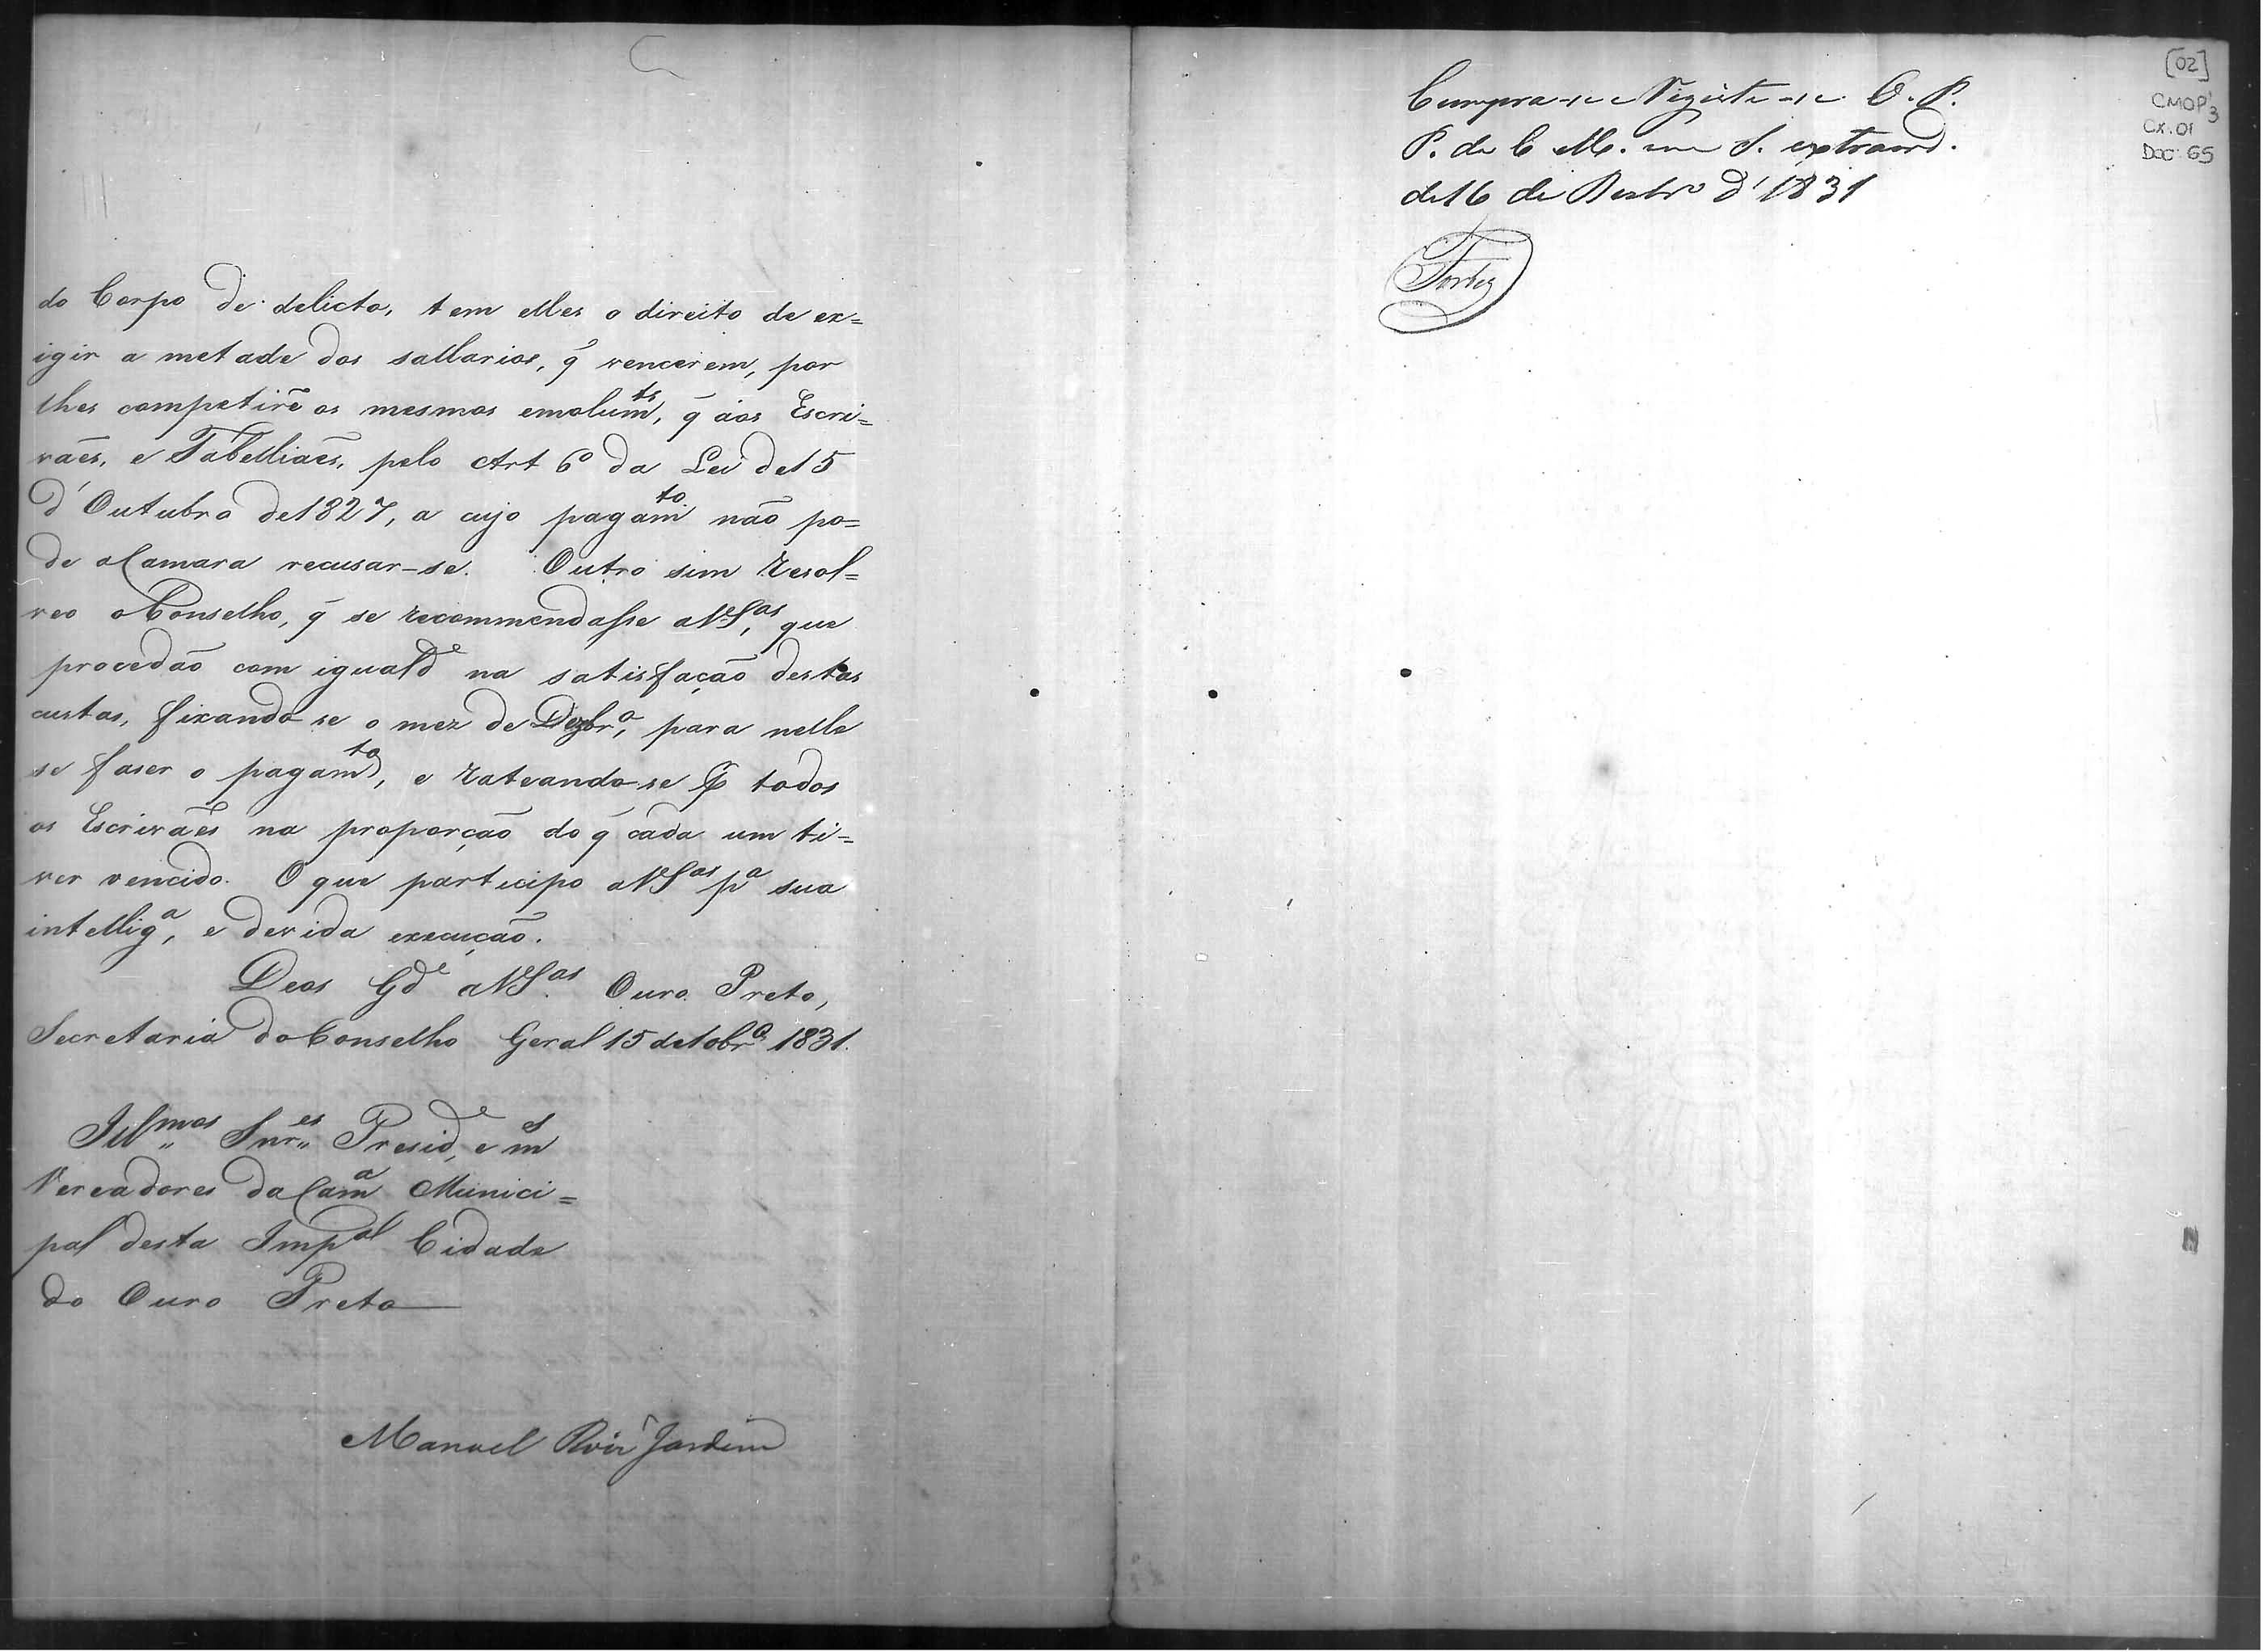 do Corpo de delicto, tem elles o direito de ex=
igir a metade dos sallarios, q̃ vencerem, por
lhes competirẽ os mesmos emolum.tos, q̃ aos Escri=
vães, e Tabelliães, pelo Art 6º da Lei de 15
d'Outubro de 1827, a cujo pagam.to não po=
de a Camara recusar-se. Outro sim resol=
veo o Conselho, q̃ se recommendasse a VS.as, que
procedão com iguald.e na satisfação destas
custas, fixando se o mez de Dezbr.o, para nelle
se faser o pagam.to, e rateando-se p todos
os Escrivães na proporção do q̃ cada um ti=
ver vencido. O que participo a VS.as p.a sua
intellig.a, e devida execução.
Deos G.de a VS.as Ouro Preto,
Secretaria do Conselho Geral 15 de 10br.o 1831.
Ill.mos Snr.es Presid.e, e m.s
Vereadores da Cam.a Munici=
pal desta Imp.al Cidade
do Ouro Preto
Manoel Jardim
Cumpra-se e Registe-se O. P.
P. da C. M. em S. extraord.
de 16 de d'1831
[02]
CMOP 3
Cx. 01
Doc: 65